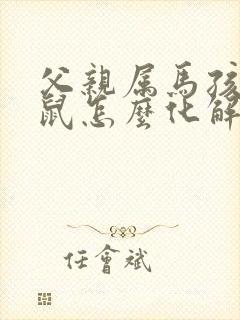 父親属馬孩
鼠怎麼化解
任會斌